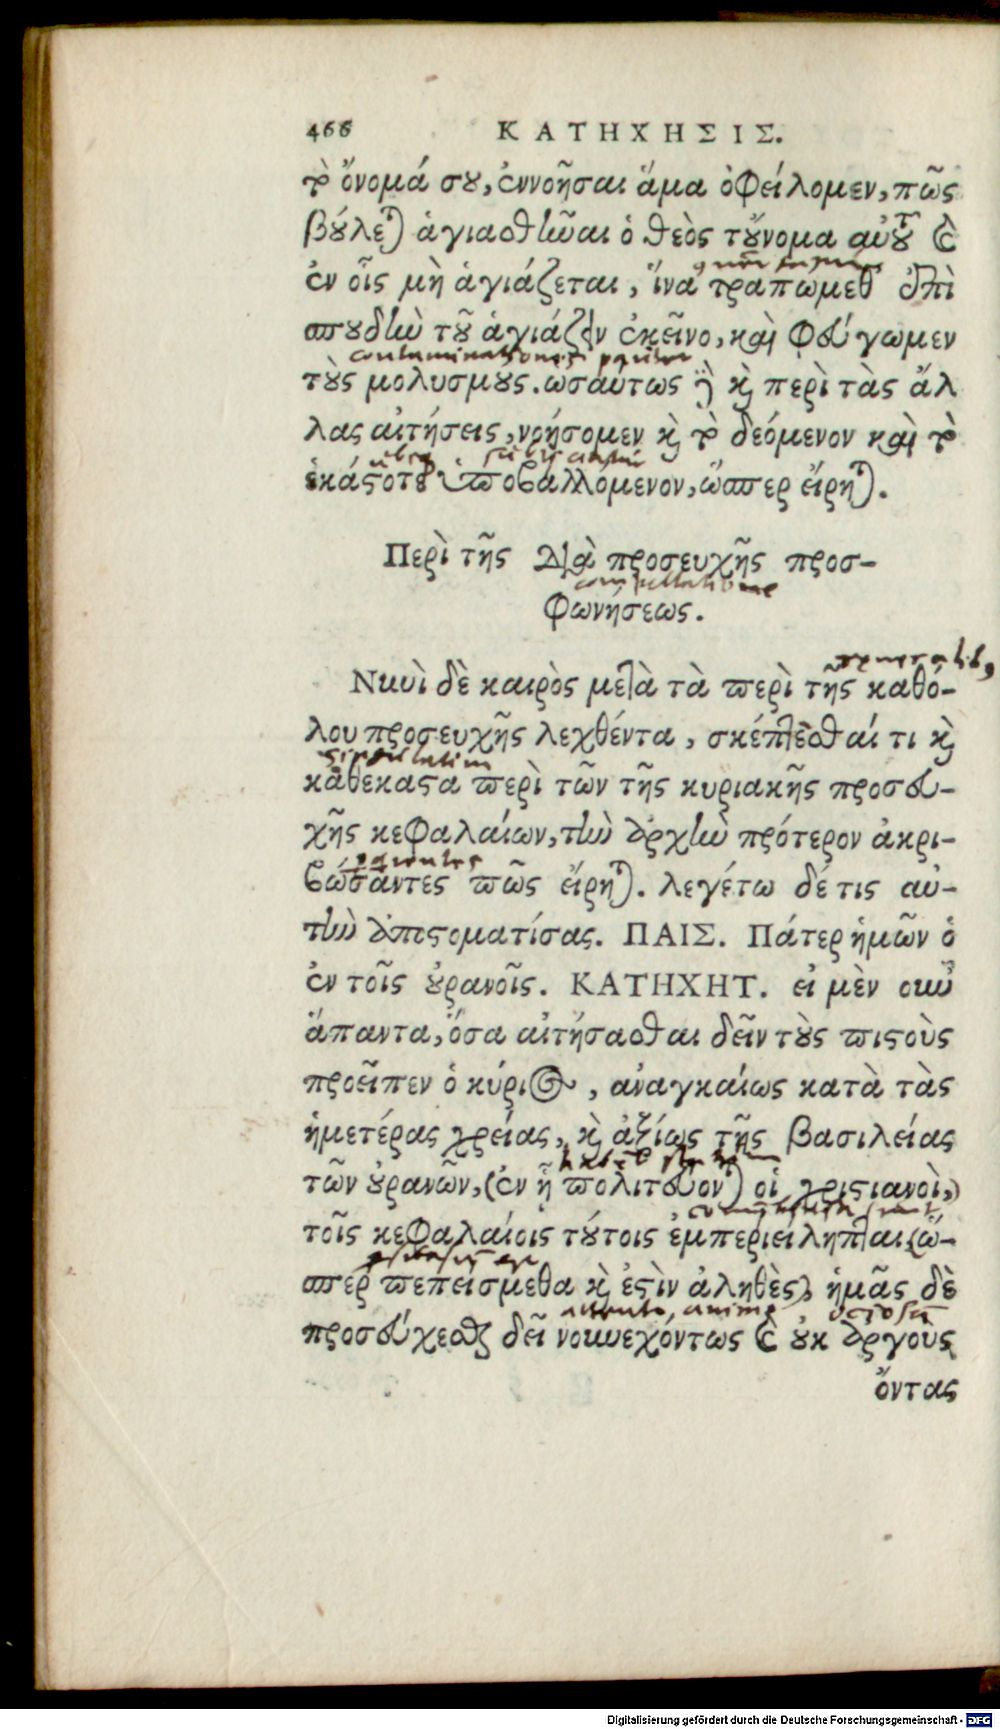 466 ΚΑΤΗΧΗΣΙΣ.
τὸ ὄνομά σου, ἐννοῆσαι ἅμα ὀφείλομεν, πῶς
βούλεται ἁγιασθῆναι ὁ θεὸς τοὔνομα αὐτοῦ καὶ
ἐν οἷς μὴ ἁγιάζεται, ἵνα τραπώμεθ ἐπὶ
σπουδὴν τοῦ ἁγιάζειν ἐκεῖνο, καὶ φεύγωμεν
contaminationes pariter
τοὺς μολυσμούς. ὡσαύτως δὲ καὶ περὶ τὰς ἄλ
λας αἰτήσεις, νοήσομεν καὶ τὸ δεόμενον καὶ τὸ
ἑκάστοτε ὑποβαλλόμενον, ὥσπερ εἴρηται.
Περὶ τῆς διὰ προσευχῆς προσ-
compellatione
φωνήσεως.
Νῦνὶ δὲ καιρὸς μετὰ τὰ περὶ τῆς καθό-
λου προσευχῆς λεχθέντα, σκέπτεσθαί τι καὶ
singulatim
καθέκαστα περὶ τῶν τῆς κυριακῆς προσευ-
χῆς κεφαλαίων, τὴν ἀρχὴν πρότερον ἀκρι-
βώσαντες πῶς εἴρηται. λεγέτω δέ τις αὐ-
τὴν ἀποστοματίσας. ΠΑΙΣ. Πάτερ ἡμῶν ὁ
ἐν τοῖς οὐρανοῖς. ΚΑΤΗΧΗΤ. εἰ μὲν οὖν
ἅπαντα, ὅσα αἰτήσασθαι δεῖν τοὺς πιστοὺς
προεῖπεν ὁ κύριος, ἀναγκαίως κατὰ τὰς
ἡμετέρας χρείας, καὶ ἀξίως τῆς βασιλείας
τῶν οὐρανῶν, (ἐν ᾗ πολιτεύονται οἱ χριστιανοὶ,)
τοῖς κεφαλαίοις τούτοις ἐμπεριείληπται (ὥ-
σπερ πεπείσμεθα καὶ ἐστὶν ἀληθὲς) ἡμᾶς δὲ
attento animo ociosos
προσεύχεσθαι δεῖ νουνεχόντως καὶ οὐκ ἀργοὺς
ὄντας
Digitalisierung gefördert durch die Deutsche Forschungsgemeinschaft - DFG